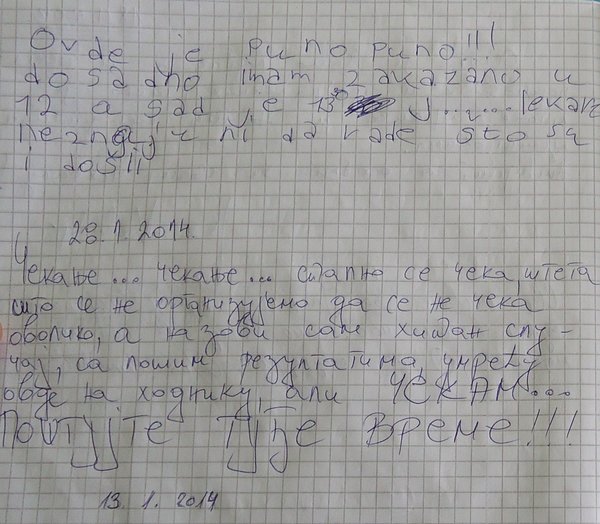 Ovde je puno puno!!!
dosadno imam zakazano u
12 a sad je 13³⁰ j........ lekare
neznaju ni da rade što su
i došli
20. 1. 2014.
Чекање... чекање... стално се чека, штета
што се не организујемо да се не чека
оволико, а назови сам хитан слу-
чај, са лошим резултатима, умрећу
овде на ходнику, али ЧЕКАМ...
ПОШТУЈТЕ ТУЂЕ ВРЕМЕ!!!
13. 1. 2014